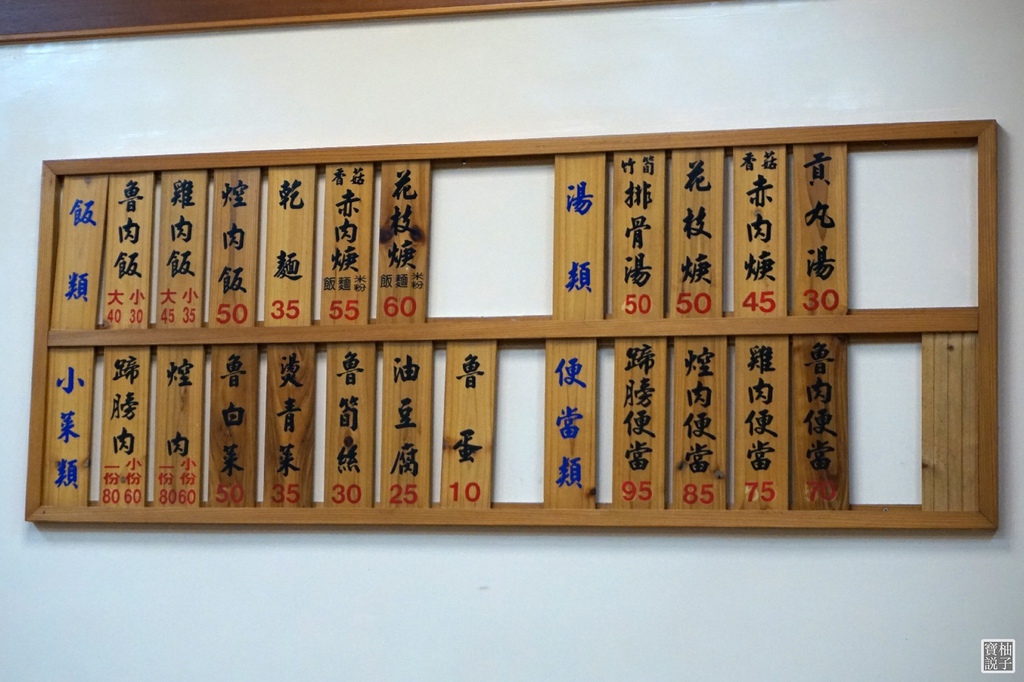 飯類
魯肉飯 大40 小30
雞肉飯 大45 小35
焢肉飯 50
乾麵 35
香菇赤肉焿 飯麵米粉 55
花枝焿 飯麵米粉 60
湯類
竹筍排骨湯 50
花枝焿 50
香菇赤肉焿 45
貢丸湯 30
小菜類
蹄膀肉 一份80 小份60
焢肉 一份80 小份60
魯白菜 50
燙青菜 35
魯筍絲 30
油豆腐 25
魯蛋 10
便當類
蹄膀便當 95
焢肉便當 85
雞肉便當 75
魯肉便當 70
柚子寶說